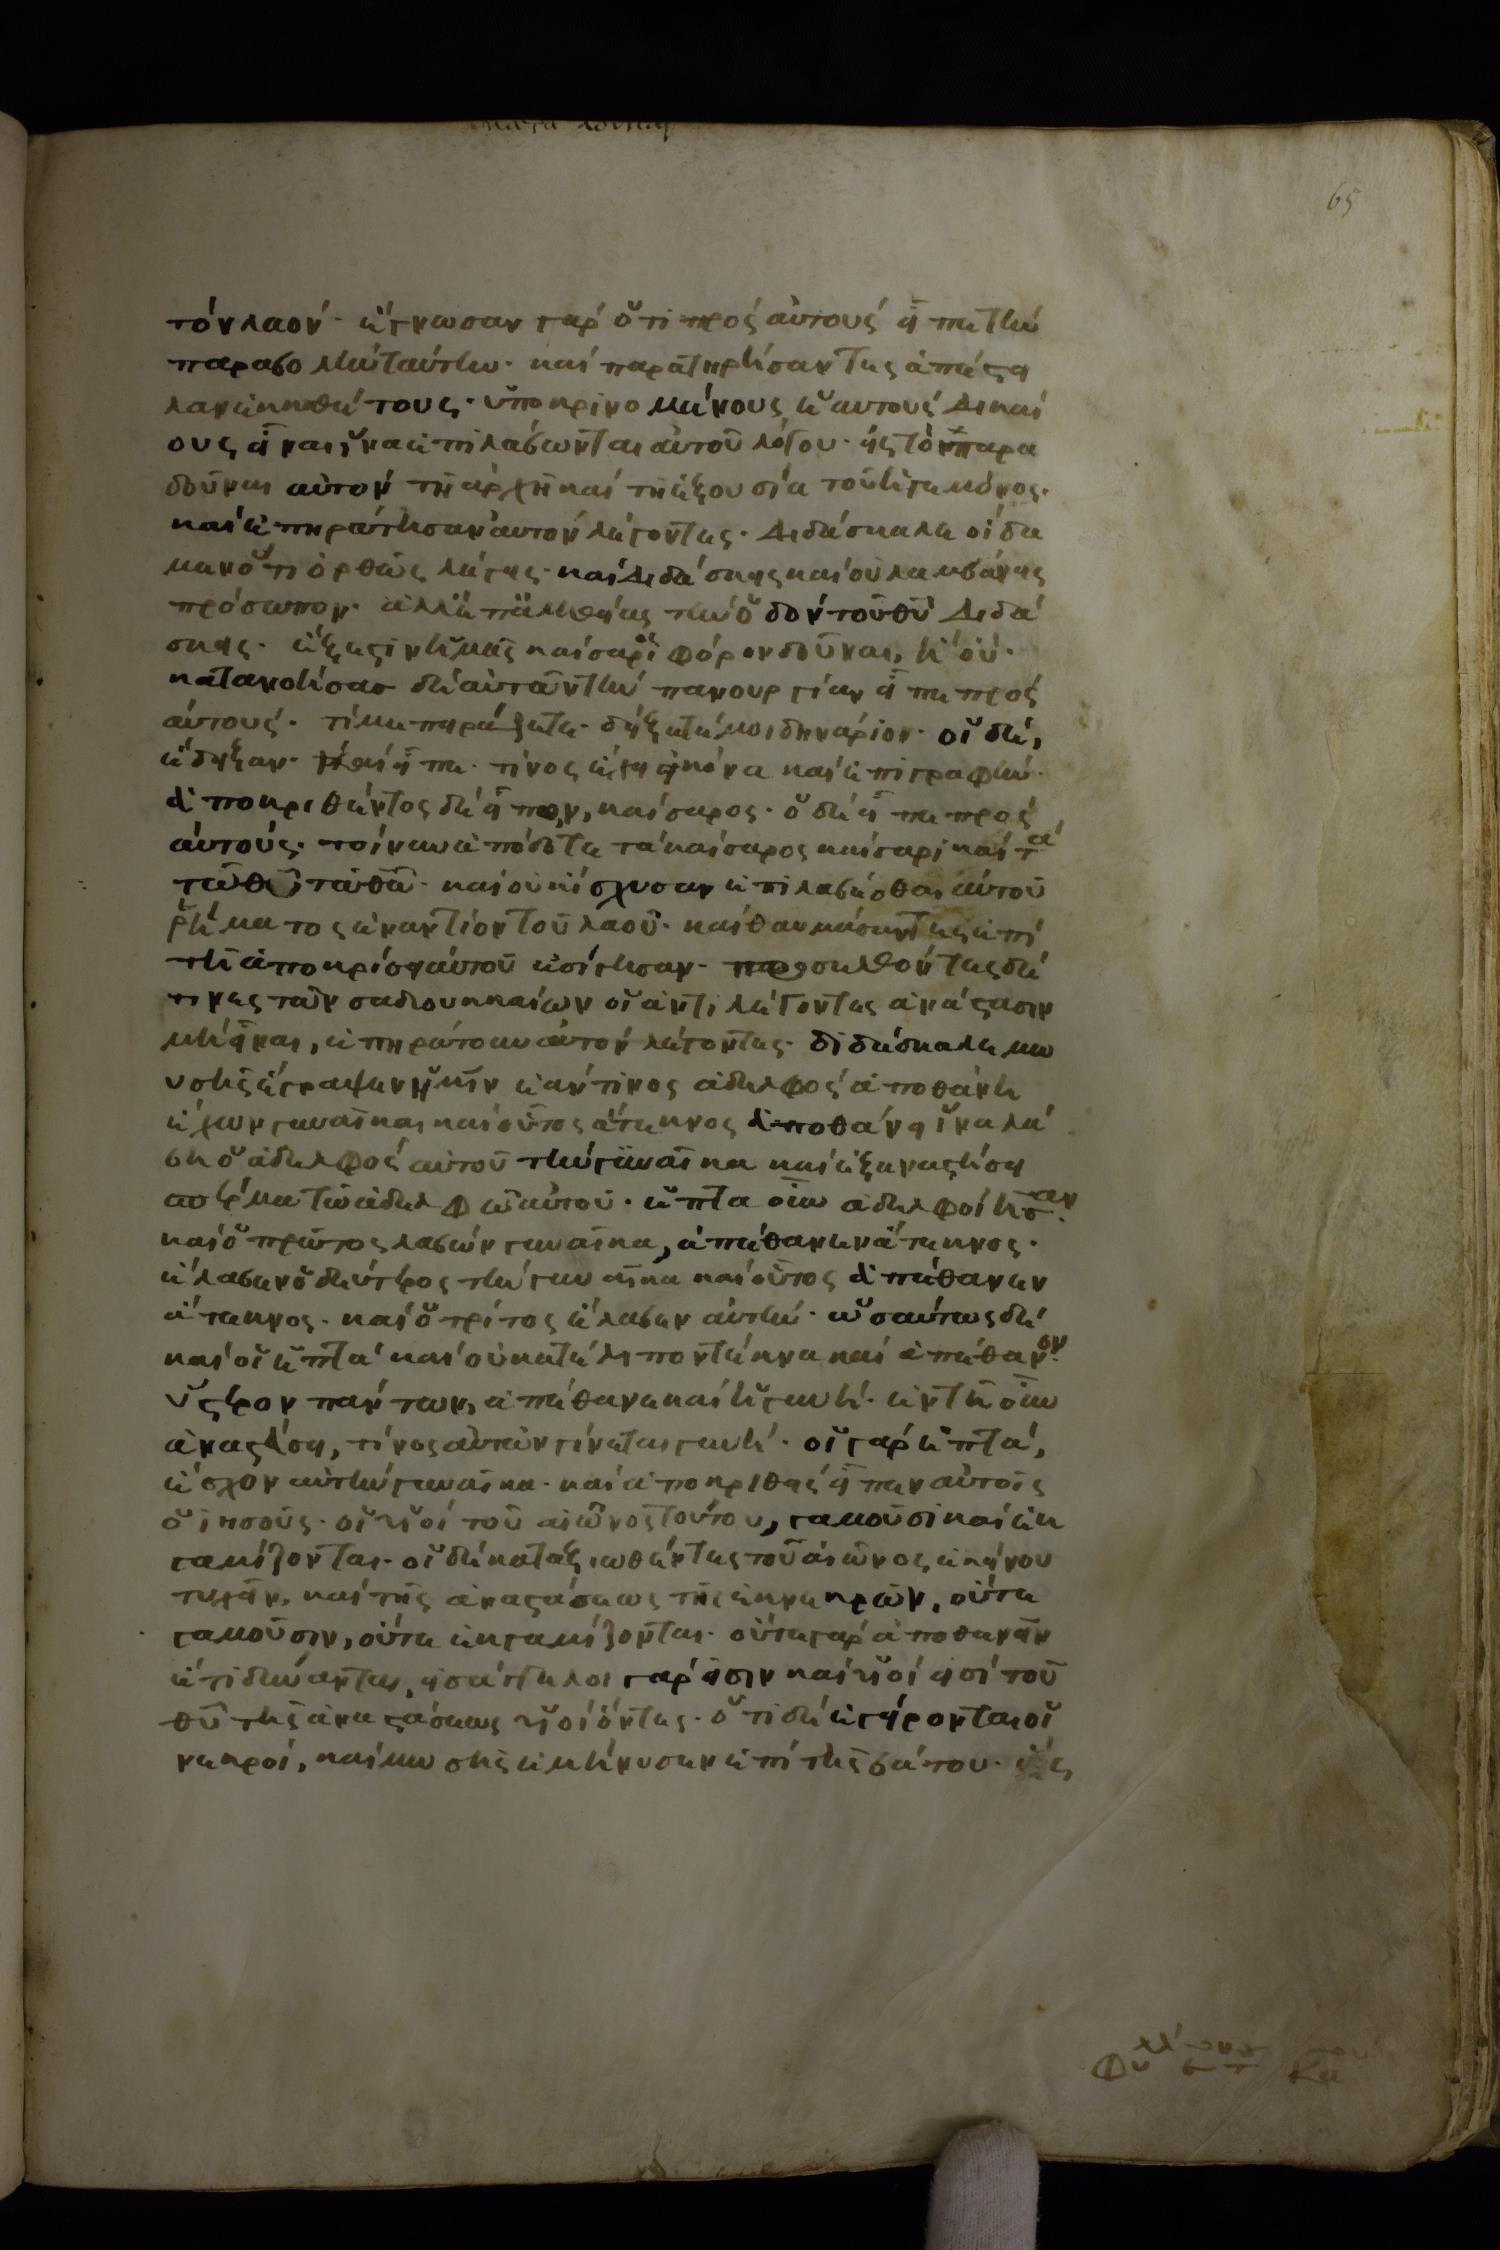 65
τὸν λαόν· ἔγνωσαν γὰρ ὅτι πρὸς αὐτοὺς εἶπε τὴν
παραβολὴν ταύτην· καὶ παρατηρήσαντες ἀπέστει
λαν ἐγκαθέτους· ὑποκρινομένους ἑαυτοὺς δικαί
ους εἶναι ἵνα ἐπιλάβωνται αὐτοῦ λόγου· εἰς τὸ παρα
δοῦναι αὐτὸν τῇ ἀρχῇ καὶ τῇ ἐξουσία τοῦ ἡγεμόνος·
καὶ ἐπηρώτησαν αὐτὸν λέγοντες· διδάσκαλε οἴδα
μεν ὅτι ὀρθῶς λέγεις· καὶ διδάσκεις καὶ οὐ λαμβάνεις
πρόσωπον· ἀλλ' ἐπ' ἀληθείας τὴν ὁδὸν τοῦ θυ διδά
σκεις· ἔξεστιν ἡμᾶς καίσαρι φόρον δοῦναι, ἢ οὔ·
κατανοήσας δὲ αὐτῶν τὴν πανουργίαν εἶπε πρὸς
αὐτούς· τί με πειράζετε· δείξατέ μοι δηνάριον· οἱ δὲ,
ἔδειξαν· καὶ εἶπε· τίνος ἔχει εἰκόνα καὶ ἐπιγραφήν·
ἀποκριθέντες δὲ εἶπον, καίσαρος· ὁ δὲ εἶπε πρὸς
αὐτούς· τοίνυν ἀπόδοτε τὰ καίσαρος καίσαρι καὶ τὰ
τοῦ θυ τῶ θω· καὶ οὐκ ἴσχυσαν ἐπιλαβέσθαι αὐτοῦ
ῥήματος ἐναντίον τοῦ λαοῦ· καὶ θαυμάσαντες ἐπὶ
τῇ ἀποκρίσει αὐτοῦ ἐσίγησαν· προσελθόντες δέ
τινες τῶν σαδδουκκαίων οἱ ἀντιλέγοντες ἀνάστασιν
μὴ εἶναι, ἐπηρώτουν αὐτὸν λέγοντες· διδάσκαλε μω
υσῆς ἔγραψεν ἡμῖν ἐάν τινος ἀδελφὸς ἀποθάνη
ἔχων γυναῖκα καὶ οὗτος ἄτεκνος ἀποθάνει ἵνα λά
βη ὁ ἀδελφὸς αὐτοῦ τὴν γυναῖκα καὶ ἐξαναστήσει
σπέρμα τῶ ἀδελφῶ αὐτοῦ· ἑπτὰ οὖν ἀδελφοὶ ἦσαν·
καὶ ὁ πρῶτος λαβὼν γυναῖκα, ἀπέθανεν ἄτεκνος·
ἔλαβεν ὁ δεύτερος τὴν γυναῖκα καὶ οὗτος ἀπέθανεν
ἄτεκνος· καὶ ὁ τρίτος ἔλαβεν αὐτήν· ὡσαύτως δὲ
καὶ οἱ ἑπτὰ καὶ οὐ κατέλιπον τέκνα καὶ ἀπέθανον·
ὕστερον πάντων, ἀπέθανε καὶ ἡ γυνή· ἐν τῇ οὖν
ἀναστάσει, τίνος αὐτῶν γίνεται γυνή· οἱ γὰρ ἑπτά,
ἔσχον αὐτὴν γυναῖκα· καὶ ἀποκριθεὶς εἶπεν αὐτοῖς
ὁ ἰησοῦς· οἱ υἱοὶ τοῦ αἰῶνος τούτου, γαμοῦσι καὶ ἐκ
γαμίζονται· οἱ δὲ καταξιωθέντες τοῦ αἰῶνος ἐκείνου
τυχεῖν, καὶ τῆς ἀναστάσεως τῆς ἐκ νεκρῶν, οὔτε
γαμοῦσιν, οὔτε ἐκγαμίζονται· οὔτε γὰρ ἀποθανεῖν
ἔτι δύνανται, ἰσάγγελοι γάρ εἰσιν καὶ υἱοί εἰσι τοῦ
θυ τῆς ἀναστάσεως υἱοὶ ὄντες· ὅτι δὲ ἐγείρονται οἱ
νεκροί, καὶ μωσῆς ἐμήνυσεν ἐπὶ τῆς βάτου· ὡς